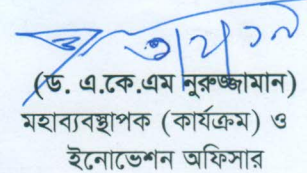 (ড. এ.কে.এম নুরুজ্জামান)
মহাব্যবস্থাপক (কার্যক্রম) ও
ইনোভেশন অফিসার